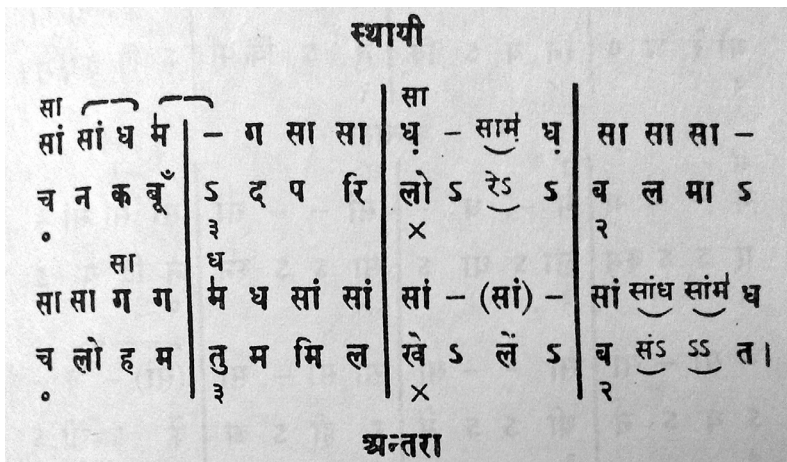 स्थायी
सा सा
सां सां ध म॑ | – ग सा सा | ध़ – साम़॑ ध़ | सा सा सा –
च न क बूँ | ऽ द प रि | लो ऽ रेऽ ऽ | ब ल मा ऽ
० ३ × २
सा ध
सा सा ग ग | म॑ ध सां सां | सां – (सां) – | सां सांध सांम॑ ध
च लो ह म | तु म मि ल | खे ऽ लें ऽ | ब संऽ ऽऽ त।
० ३ × २
अन्तरा